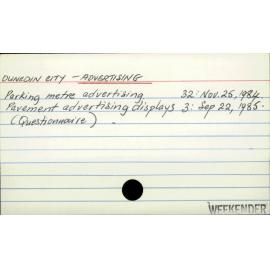 DUNEDIN CITY - ADVERTISING
Parking metre advertising 32: Nov. 25, 1984
Pavement advertising displays 3: Sep 22, 1985.
(Questionnaire).
WEEKENDER